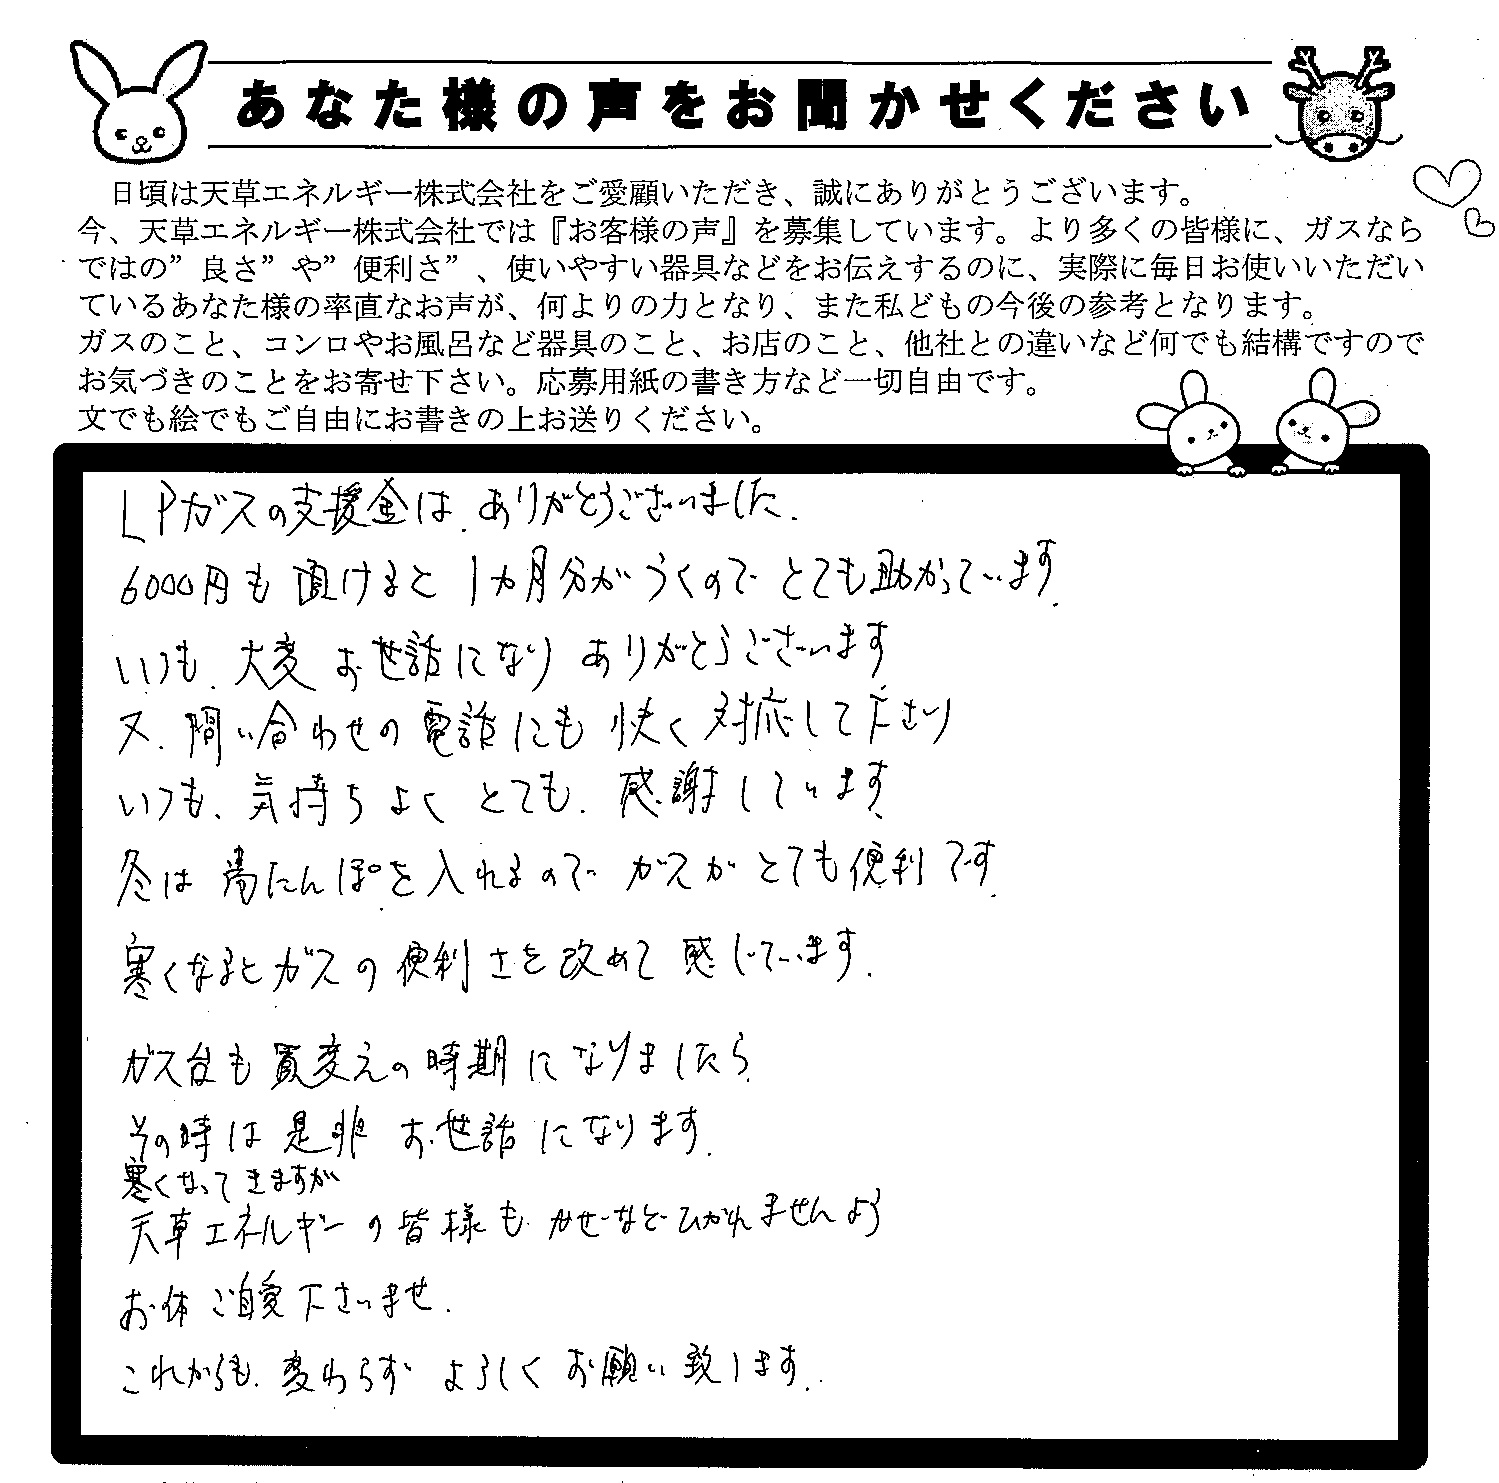 あなた様の声をお聞かせください
日頃は天草エネルギー株式会社をご愛顧いただき、誠にありがとうございます。
今、天草エネルギー株式会社では『お客様の声』を募集しています。より多くの皆様に、ガスなら
ではの”良さ”や”便利さ”、使いやすい器具などをお伝えするのに、実際に毎日お使いいただい
ているあなた様の率直なお声が、何よりの力となり、また私どもの今後の参考となります。
ガスのこと、コンロやお風呂など器具のこと、お店のこと、他社との違いなど何でも結構ですので
お気づきのことをお寄せ下さい。応募用紙の書き方など一切自由です。
文でも絵でもご自由にお書きの上お送りください。
LPガスの支援金は、ありがとうございました。
6000円も頂けると1カ月分がうくのでとても助かっています。
いつも、大変お世話になりありがとうございます
又、問い合わせの電話にも快く対応して下さり
いつも、気持ちよくとても、感謝しています。
冬は湯たんぽを入れるのでガスがとても便利です。
寒くなるとガスの便利さを改めて感じています。
ガス台も買変えの時期になりましたら
その時は是非お世話になります。
寒くなってきますが
天草エネルギーの皆様もかぜなどひかれませんよう
お体ご自愛下さいませ。
これからも、変わらずよろしくお願い致します。